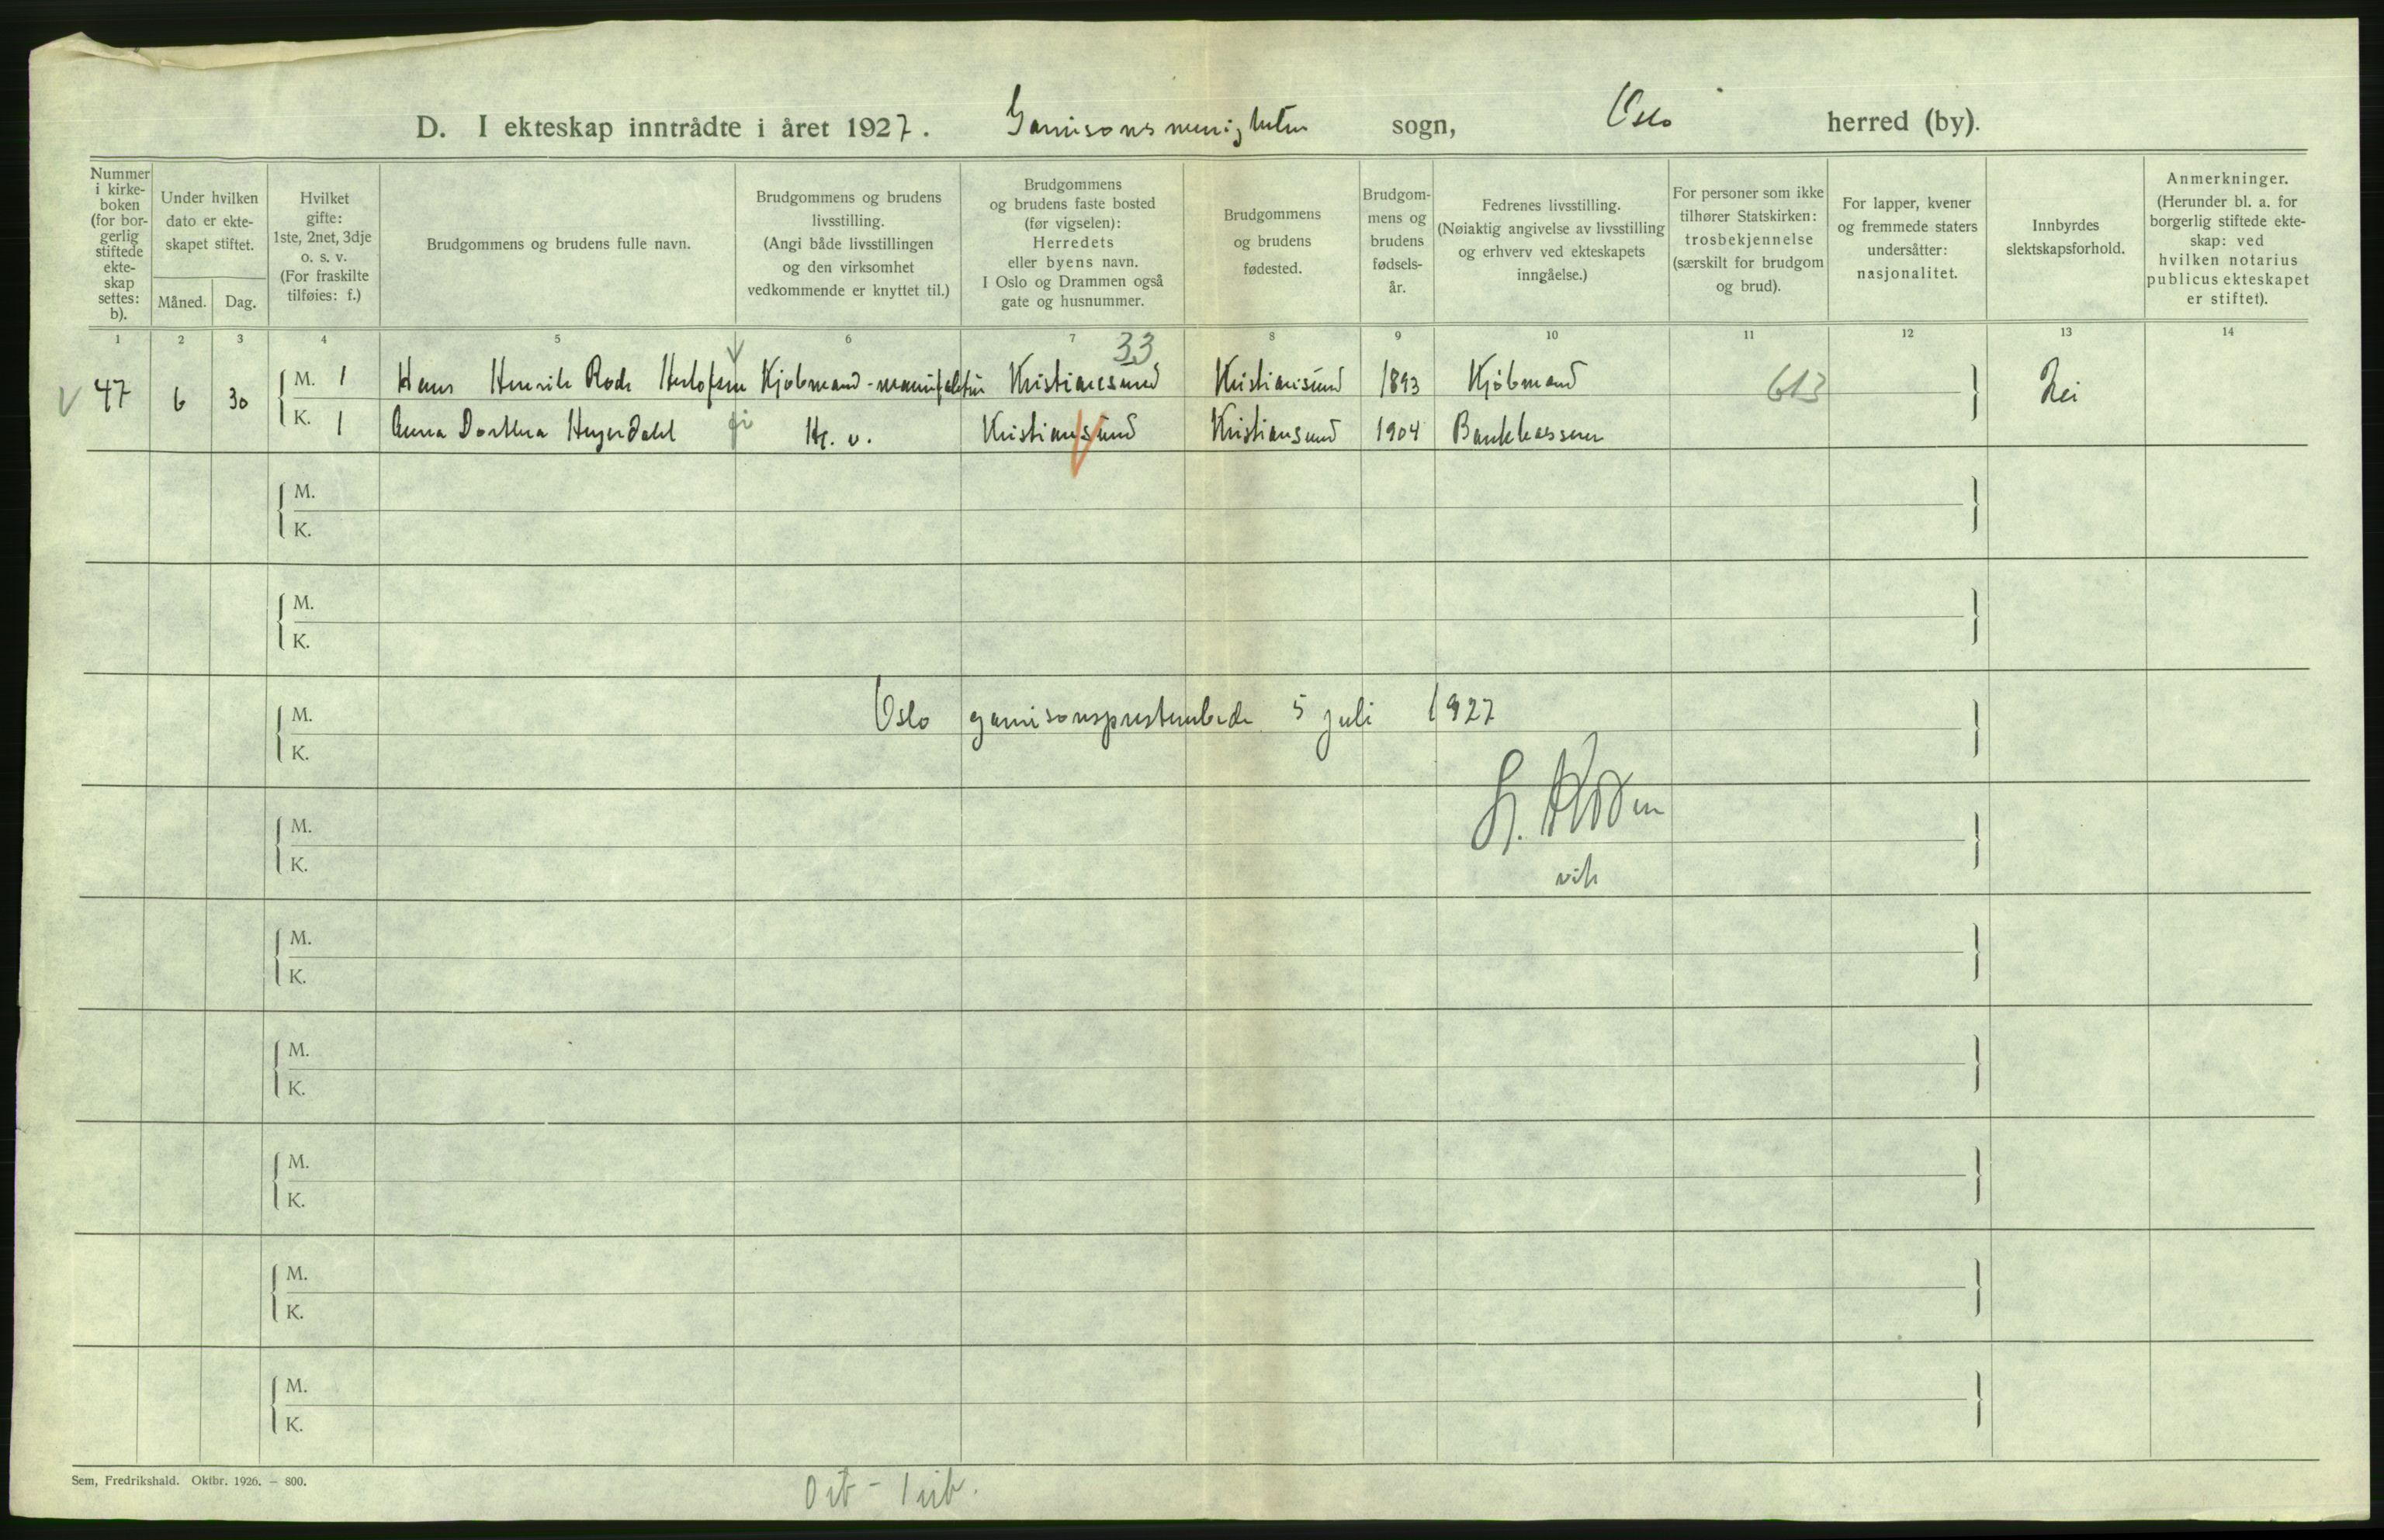 D. I ekteskap inntrådte i året 1927. Garnisonsmenigheten sogn, Oslo herred (by).
Nummer i kirke-boken (for bor-gerlig stiftede ekte-skap settes: b).
Under hvilken dato er ekte-skapet stiftet.
Måned. Dag.
Hvilket gifte: 1ste, 2net, 3dje o. s. v. (For fraskilte tilføies: f.)
Brudgommens og brudens fulle navn.
Brudgommens og brudens livsstilling. (Angi både livsstillingen og den virksomhet vedkommende er knyttet til.)
Brudgommens og brudens faste bosted (før vigselen): Herredets eller byens navn. I Oslo og Drammen også gate og husnummer.
Brudgommens og brudens fødested.
Brudgom-mens og brudens fødsels-år.
Fedrenes livsstilling. (Nøiaktig angivelse av livsstilling og erhverv ved ekteskapets inngåelse.)
For personer som ikke tilhører Statskirken: trosbekjennelse (særskilt for brudgom og brud).
For lapper, kvener og fremmede staters undersåtter: nasjonalitet.
Innbyrdes slektskapsforhold.
Anmerkninger. (Herunder bl. a. for borgerlig stiftede ekte-skap: ved hvilken notarius publicus ekteskapet er stiftet).
1 2 3 4 5 6 7 8 9 10 11 12 13 14
33
47 6 30 M. 1 Hans Henrik Rode Herlofsen Kjøbmand - manufaktur Kristiansund Kristiansund 1893 Kjøbmand 613 Nei
K. 1 Anna Dorthea Heyerdahl H. v. Kristiansund Kristiansund 1904 Bankkasserer
M.
K.
M.
K.
M.
Oslo garnisonsprestembede 5 juli 1927
K.
M.
K.
vik
M.
K.
M.
K.
M.
K.
M.
K.
M.
K.
Sem, Fredrikshald. Oktbr. 1926. — 800.